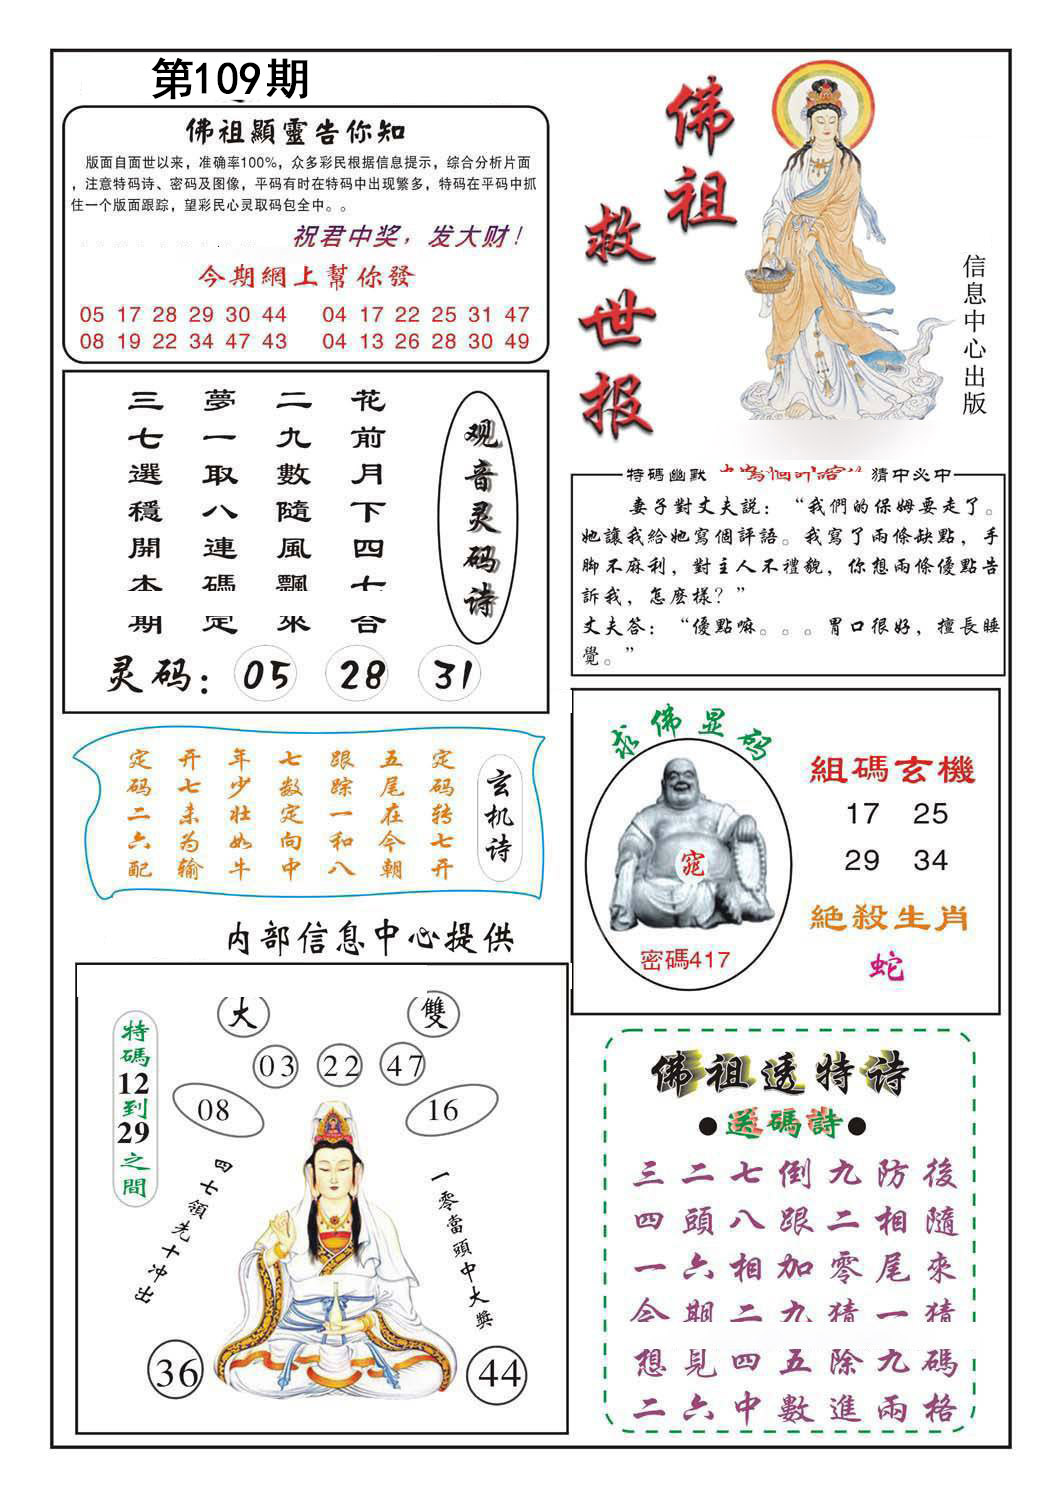 第109期
佛祖顯靈告你知
版面自面世以来，准确率100%，众多彩民根据信息提示，综合分析片面
，注意特码诗、密码及图像，平码有时在特码中出现繁多，特码在平码中抓
住一个版面跟踪，望彩民心灵取码包全中。。
祝君中奖，发大财！
今期網上幫你發
05 17 28 29 30 44 04 17 22 25 31 47
08 19 22 34 47 43 04 13 26 28 30 49
佛祖
救世报
信息中心出版
观音灵码诗
花前月下四七合
二九數隨風飄來
夢一取八連碼定
三七選穩開本期
灵码：05 28 31
特碼幽默
猜中必中
妻子對丈夫説：“我們的保姆要走了。
她讓我給她寫個評語。我寫了兩條缺點，手
脚不麻利，對主人不禮貌，你想兩條優點告
訴我，怎麽樣？”
丈夫答：“優點嘛。。。胃口很好，擅長睡
覺。”
玄机诗
定码转七开
五尾在今朝
跟踪一和八
七数定向中
年少壮如牛
开七未为输
定码二六配
求佛显码
密碼417
組碼玄機
17 25
29 34
絶殺生肖
蛇
内部信息中心提供
大
雙
03 22 47
08
16
特碼12到29之間
四七領先十冲出
一零當頭中大獎
36
44
佛祖透特诗
●送碼詩●
三二七倒九防後
四頭八跟二相隨
一六相加零尾來
今期二九猜一猜
想見四五除九碼
二六中數進兩格